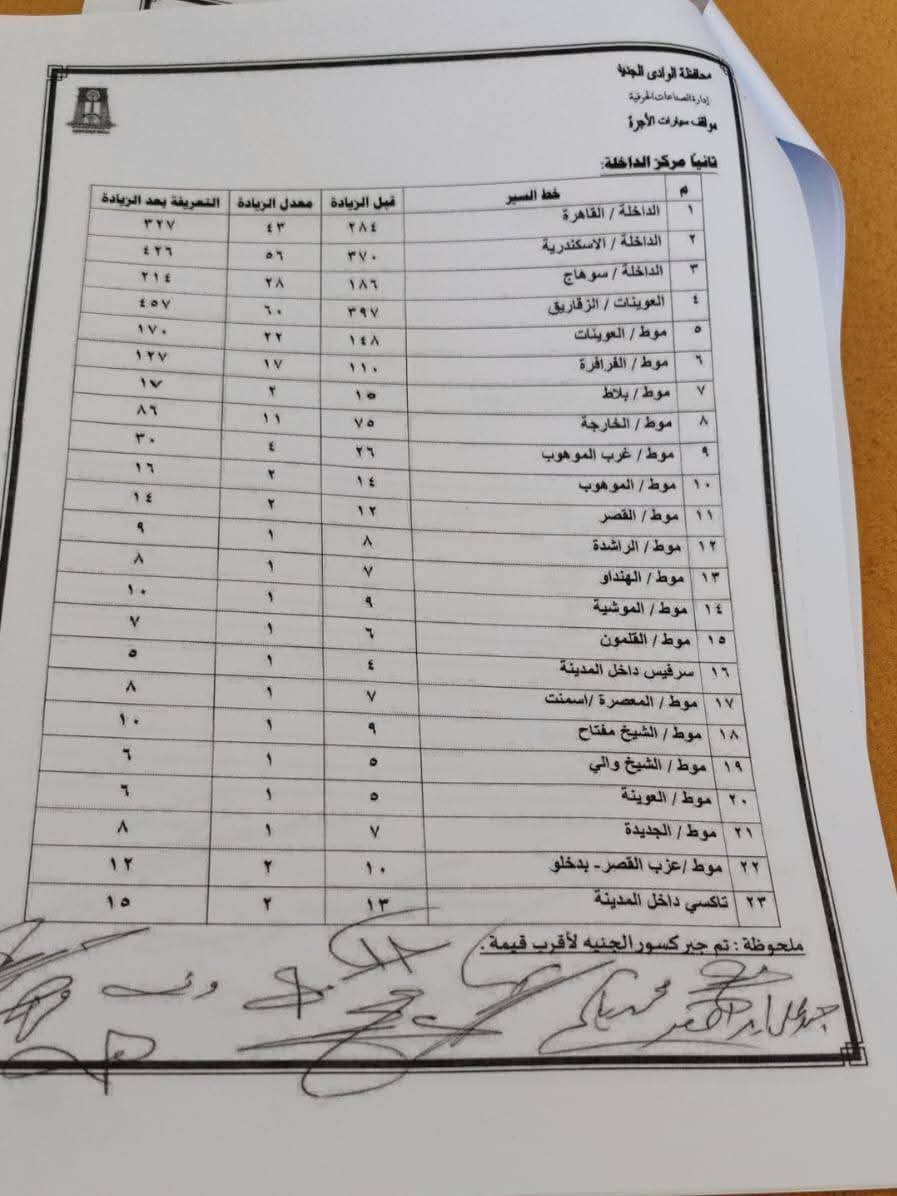 محافظة الوادى الجديد
إدارة الصناعات الحرفية
موقف سيارات الأجرة
ثانياً مركز الداخلة:
م خط السير قبل الزيادة معدل الزيادة التعريفة بعد الزيادة
١ الداخلة / القاهرة ٢٨٤ ٤٣ ٣٢٧
٢ الداخلة / الاسكندرية ٣٧٠ ٥٦ ٤٢٦
٣ الداخلة / سوهاج ١٨٦ ٢٨ ٢١٤
٤ العوينات / الزقاريق ٣٩٧ ٦٠ ٤٥٧
٥ موط / العوينات ١٤٨ ٢٢ ١٧٠
٦ موط / الفرافرة ١١٠ ١٧ ١٢٧
٧ موط / بلاط ١٥ ٢ ١٧
٨ موط / الخارجة ٧٥ ١١ ٨٦
٩ موط / غرب الموهوب ٢٦ ٤ ٣٠
١٠ موط / الموهوب ١٤ ٢ ١٦
١١ موط / القصر ١٢ ٢ ١٤
١٢ موط / الراشدة ٨ ١ ٩
١٣ موط / الهنداو ٧ ١ ٨
١٤ موط / الموشية ٩ ١ ١٠
١٥ موط / القلمون ٦ ١ ٧
١٦ سرفيس داخل المدينة ٤ ١ ٥
١٧ موط / المعصرة /اسمنت ٧ ١ ٨
١٨ موط / الشيخ مفتاح ٩ ١ ١٠
١٩ موط / الشيخ والي ٥ ١ ٦
٢٠ موط / العوينة ٥ ١ ٦
٢١ موط / الجديدة ٧ ١ ٨
٢٢ موط /عزب القصر- بدخلو ١٠ ٢ ١٢
٢٣ تاكسي داخل المدينة ١٣ ٢ ١٥
ملحوظة : تم جبر كسور الجنيه لأقرب قيمة .